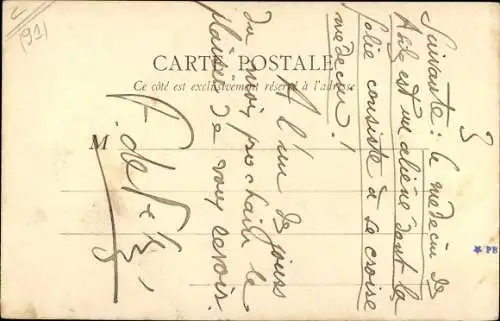 (91)
CARTE POSTALE
Ce côté est exclusivement réservé à l'adresse
M
3
Suivante : le médecin de
l'asile est un aliéné dont la
folie consiste à se croire
médecin !
A l'un de jours
du mois prochain le
plaisir de vous revoir.
F. de
PB